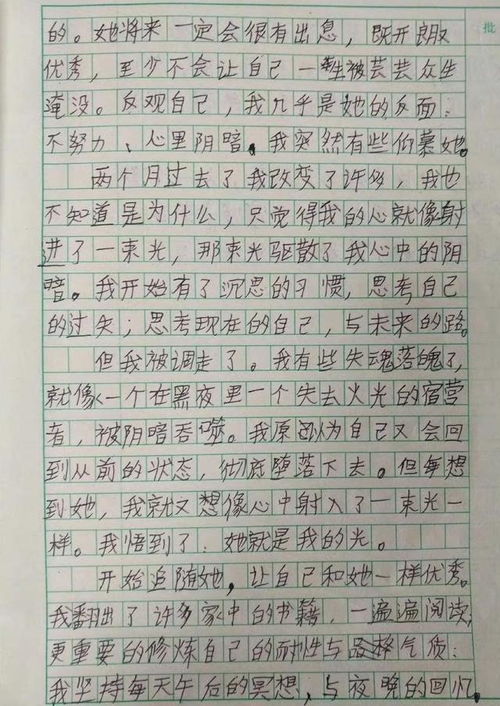 批
的。她将来一定会很有出息，既开朗又
优秀，至少不会让自己一生被芸芸众生
淹没。反观自己，我几乎是她的反面：
不努力、心里阴暗。我突然有些仰慕她。
两个月过去了我改变了许多，我也
不知道是为什么，只觉得我的心就像射
进了一束光，那束光驱散了我心中的阴
暗。我开始有了沉思的习惯，思考自己
的过失；思考现在的自己，与未来的路。
但我被调走了。我有些失魂落魄了，
就像一个在黑夜里一个失去火光的宿营
者，被阴暗吞噬。我原以为自己又会回
到从前的状态，彻底堕落下去。但每想
到她，我就又想像心中射入了一束光一
样。我悟到了：她就是我的光。
开始追随她，让自己和她一样优秀。
我翻出了许多家中的书籍，一遍遍阅读，
更重要的修炼自己的耐性与品格气质：
我坚持每天午后的冥想，与夜晚的回忆。